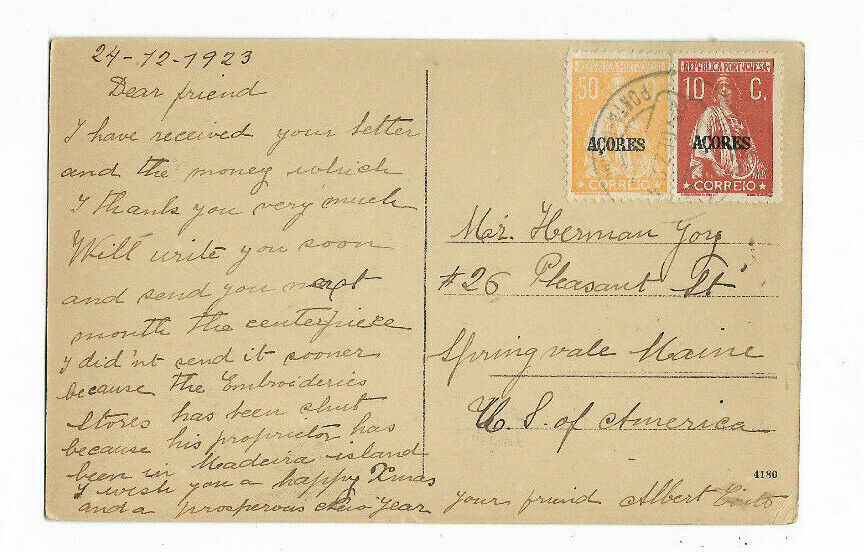 24-12-1923
Dear friend
I have received your letter
and the money which
I thanks you very much
Will write you soon
and send you next
month the centerpiece
I did'nt send it sooner
because the Embroideries
stores has been shut
because his proprietor has
been in Madeira island
I wish you a happy Xmas
and a prosperous New Year
your friend Albert
REPUBLICA PORTUGUESA
50
AÇORES
CORREIO
REPUBLICA PORTUGUESA
10 C.
AÇORES
CORREIO
PONTA
Mr. Herman
#26 Pleasant St
Springvale Maine
U. S. of America
4180